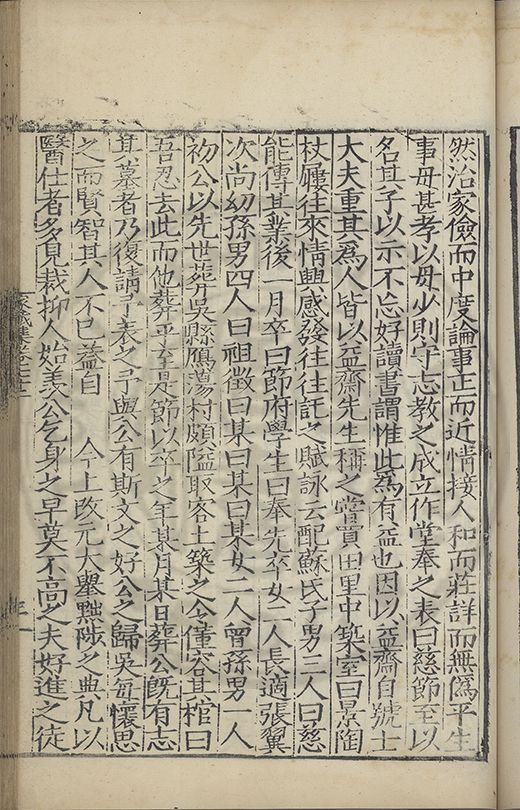 然治家儉而中度論事正而近情接人和而莊詳而無僞平生
事母甚孝以母少則守志教之成立作堂奉之表曰慈節至以
名其子以示不忘好讀書謂惟此爲有益也因以益齋自號士
大夫重其爲人皆以益齋先生稱之嘗買田里中築室曰景陶
杖屨往來情興感發往往託之賦詠云配蘇氏子男二人曰慈
能傳其業後一月卒曰節府學生曰奉先卒女二人長適張翼
次尚幼孫男四人曰祖徵曰某曰某女二人曾孫男一人
初公以先世葬吳縣鴈蕩村頗隘取客土築之今僅容其棺曰
吾忍去此而他葬乎至是節以卒之年某月某日葬公旣有志
其墓者乃復請予表之予與公有斯文之好公之歸吳每懷思
之而賢智其人不已蓋自　今上改元大舉黜陟之典凡以
醫仕者多見裁抑人始羨公乞身之早莫不高之夫好進之徒
家藏集卷七十